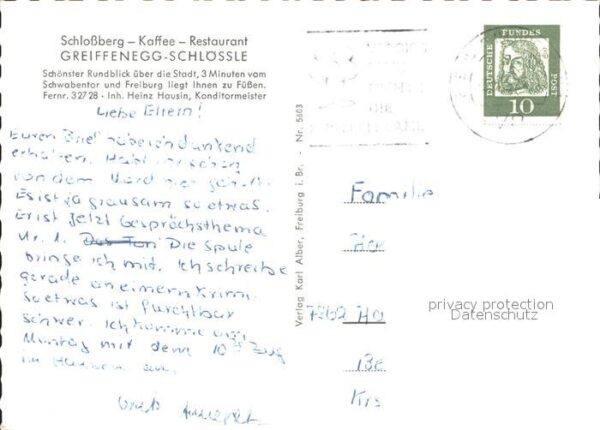 Schloßberg – Kaffee – Restaurant
GREIFFENEGG-SCHLÖSSLE
Schönster Rundblick über die Stadt, 3 Minuten vom
Schwabentor und Freiburg liegt Ihnen zu Füßen.
Fernr. 32728 - Inh. Heinz Hausin, Konditormeister
Liebe Eltern!
Euren Brief habe ich dankend
erhalten. Habt ihr schon
von dem Mord hier
Es ist ja grausam so etwas.
Er ist jetzt Gesprächsthema
Nr. 1. Die Spule
bringe ich mit. Ich schreibe
gerade an einem Krimi
so etwas ist furchtbar
schwer. Ich komme am
Montag mit dem 10 Zug
an.
Verlag Karl Alber, Freiburg i. Br. - Nr. 5603
DEUTSCHE BUNDESPOST
10
Familie
privacy protection
Datenschutz